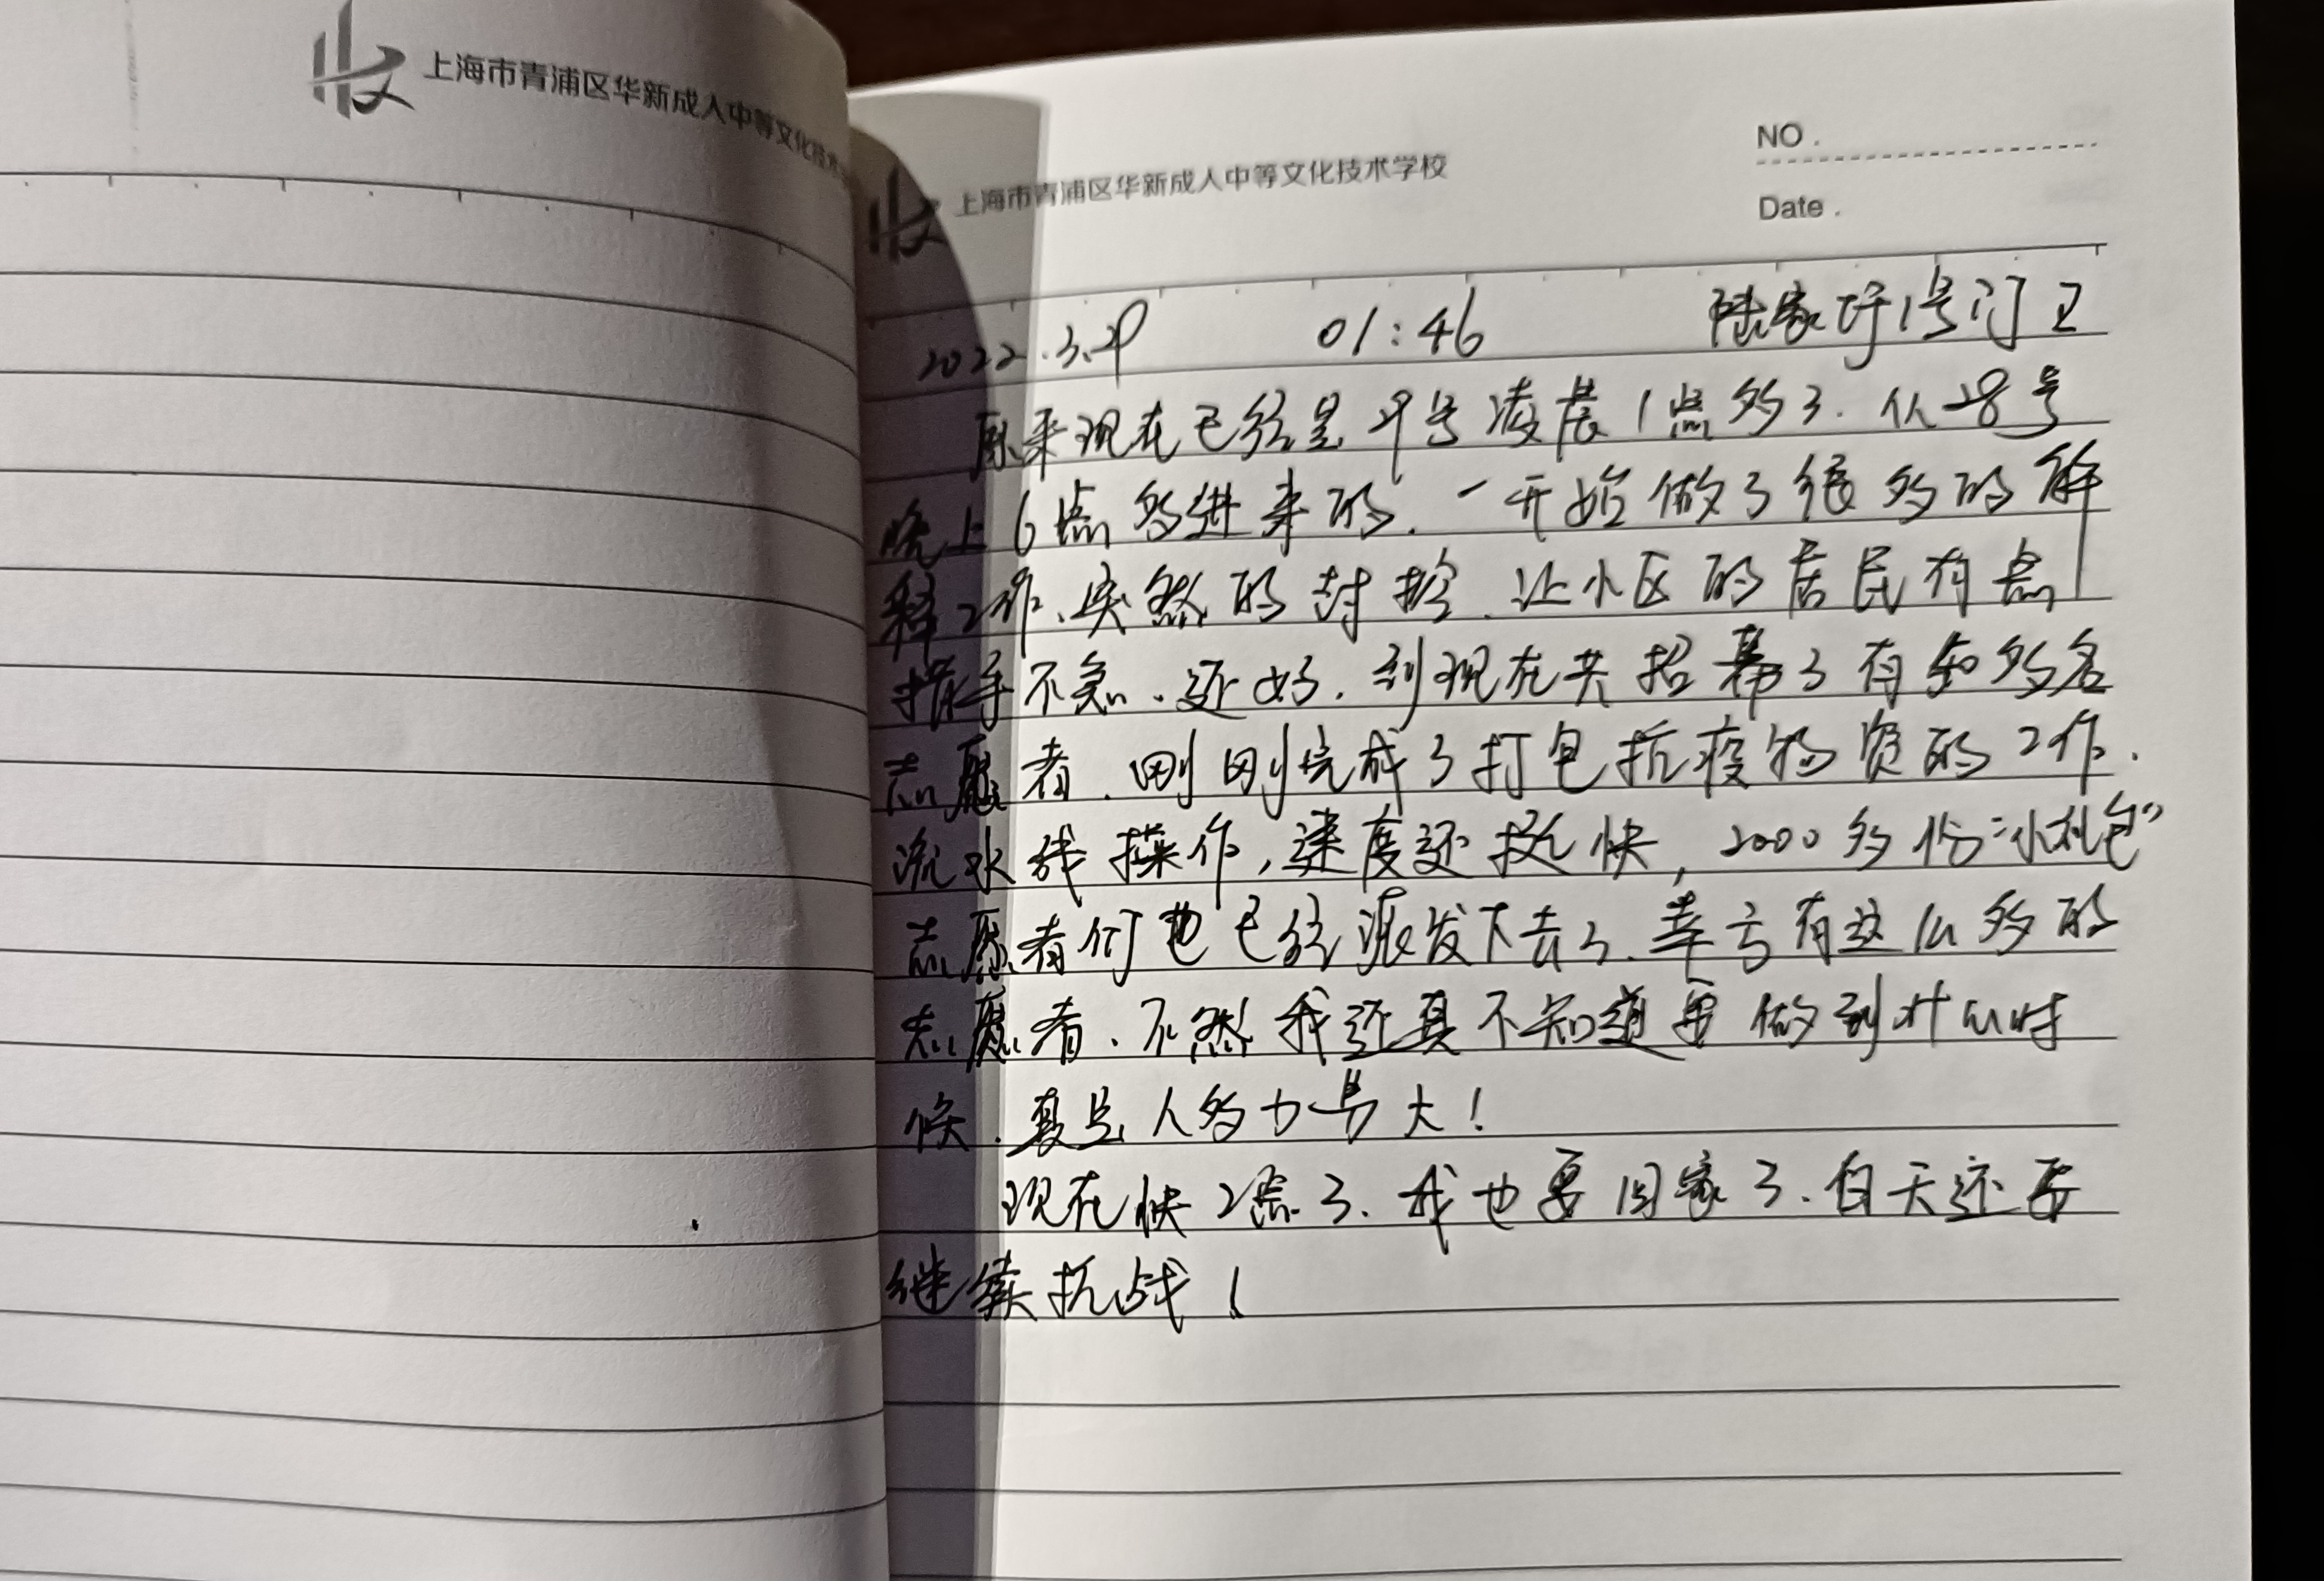 上海市青浦区华新成人中等文化技术
上海市青浦区华新成人中等文化技术学校
NO.
Date.
2022.3.29 01:46 陆家圩1号门卫
原来现在已经是29号凌晨1点多了.从28号
晚上6点多进来的.一开始做了很多的解
释工作、突然的封控.让小区的居民有点
措手不急.还好.到现在共招募了有多名
志愿者.刚刚完成了打包抗疫物资的工作.
流水线操作,速度还挺快,2000多份“小礼包”
志愿者们也已经派发下去了.幸亏有这么多的
志愿者.不然我还真不知道要做到什么时
候.真是人多力量大!
现在快2点了.我也要回家了.白天还要
继续抗战!